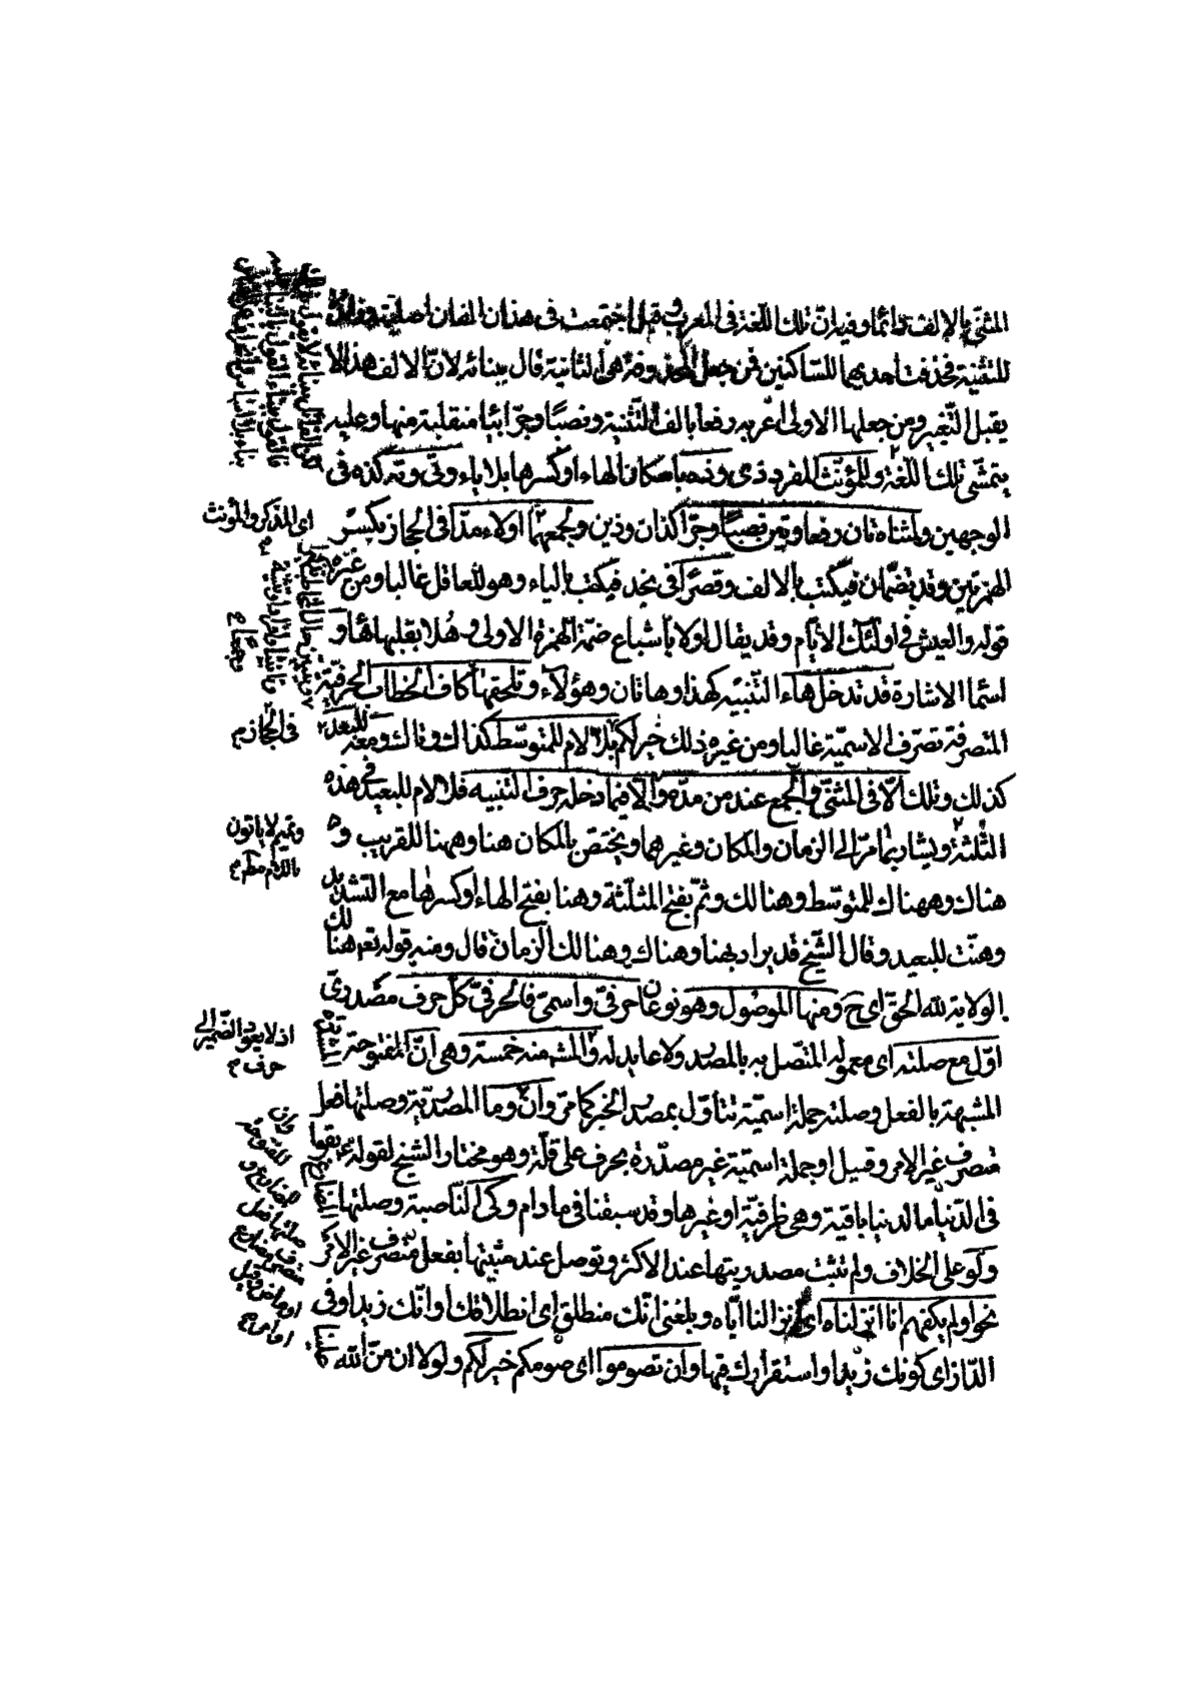 المثنّى بالالف دائما وفيه انّ تلك اللّغة فى المعرب وقيل اجتمعت فى هذان الفان اصلية وفائدة
للتثنية فحذفت احديهما للسّاكنين فمن جعل المحذوفة هى الثانية قال ببنائه لانّ الالف هذا لا
يقبل التّغيير ومن جعلها الاولى اعربه رفعا بالف التّثنية ونصبًا وجرّا بيائها منقلبة منها وعليه
يتمشّى تلك اللّغة وللمؤنّث المفرد ذى وذه باسكان الهاء او كسرها بلا ياء وتى وته كذه فى
الوجهين ولمثناه تان رفعا وتين نصبًا وجرّا كذان وذين ولجمعهما اولاء مدّا فى الحجاز بكسر
الهمزتين وقد يضمّان فيكتب بالالف وقصرًا فى نجد فيكتب بالياء وهو للعاقل غالبا ومن غيره
قوله والعيش فى اولئك الايّام وقد يقال اولا باشباع ضمّة الهمزة الاولى وهُلا بقلبها هاء و
اسماء الاشارة قد تدخل هاء التّنبيه كهذا وهاتان وهؤلاء وتلحقها كاف الخطاب الحرفيّة
المتصرفة تصرّف الاسميّة غالبا ومن غيره ذلك خير لكم بلا لام للمتوسّط كذاك وتاك ومعه للبعد
كذلك وتلك الّا فى المثنّى والجمع عند من مدّه والّا فيما دخله حرف التنبيه فلا لام للبعيد فى هذه
الثّلثة ويشار بما مرّ الى الزمان والمكان وغيرهما ويختصّ بالمكان هنا وههنا للقريب و
هناك وههناك للمتوسّط وهنالك وثمّ بفتح المثلّثة وهنا بفتح الهاء او كسرها مع التشديد
وهنّت للبعيد وقال الشّيخ قد يراد بهنا وهناك وهنالك الزمان قال ومنه قوله تعم هنالك
الولاية للّه الحقّ اى ح ومنها الموصُول وهو نوعان حرفىّ واسمىّ فالحرفىّ كلّ حرف مصدرىّ
اوّل مع صلته اى معموله المتّصل به بالمصدر ولا عايد له والمشه منه خمسة وهى انّ المفتوحة المشدّدة
المشبهة بالفعل وصلته جملة اسميّة تتأوّل بمصدر الخبر كما مرّ وان وما المصدريّة وصلتها فعل
متصرف غير الامر وقيل او جملة اسميّة غير مصدّرة بحرف على قلّة وهو مختار الشيخ لقوله بقوا
فى الدّنيا ما الدنيا باقية وهى ظرفيّة او غيرها وقد سبقنا فى ما دام وكى النّاصبة وصلتها المضارع
ولو على الخلاف ولم تثبت مصدريتها عند الاكثر وتوصل عند مثبتها بفعل متصرف غير الامر
نحو اولم يكفهم انّا انزلناه اى انزالنا ايّاه وبلغنى انّك منطلق اى انطلاقك او انّك زيد او فى
الدّار اى كونك زيدا واستقرارك فيها وان تصوموا اى صومكم خير لكم ولولا ان منّ اللّه علينا
اى المذكر والمؤنث
فى الحجاز م
وتميم لا ياتون
باللام مطم م
اذ لا يعود الضمير الى
حرف م